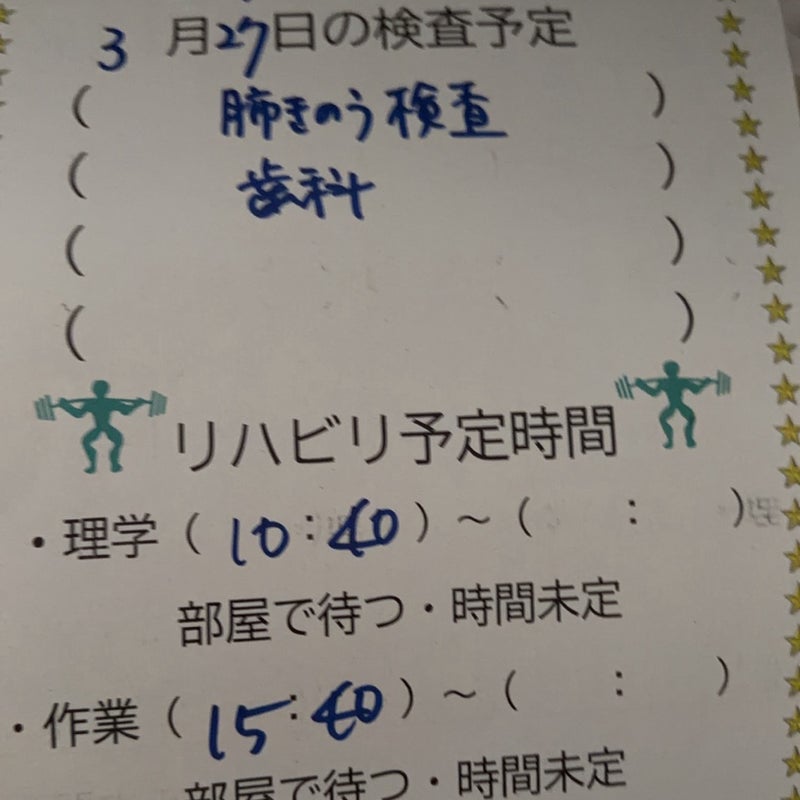 3月27日の検査予定
( 肺きのう検査 )
( 歯科 )
( )
( )
リハビリ予定時間
・理学 ( 10:40 ) ～ ( : )
部屋で待つ・時間未定
・作業 ( 15:40 ) ～ ( : )
部屋で待つ・時間未定